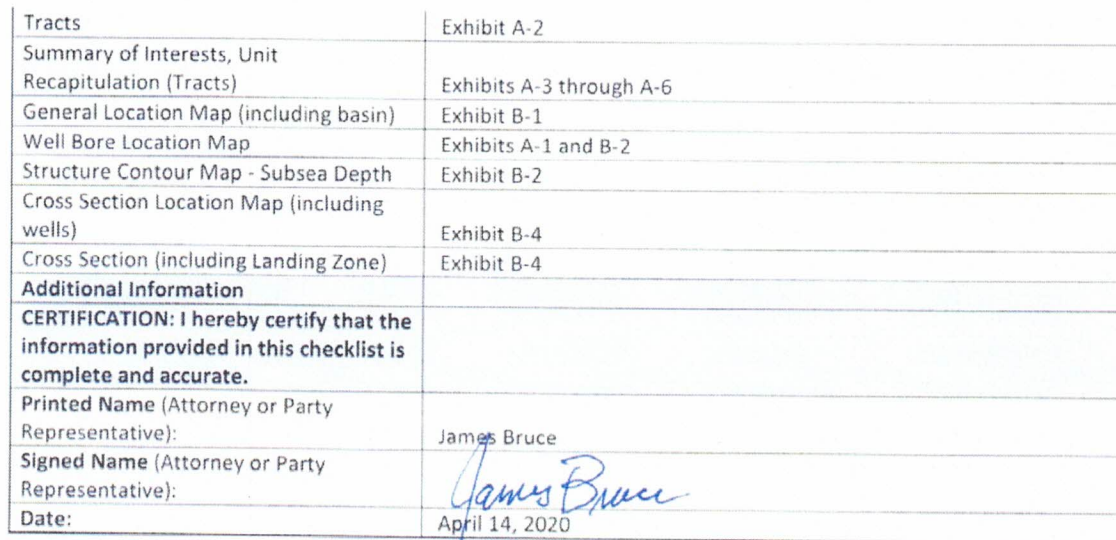 Tracts Exhibit A-2
Summary of Interests, Unit
Recapitulation (Tracts) Exhibits A-3 through A-6
General Location Map (including basin) Exhibit B-1
Well Bore Location Map Exhibits A-1 and B-2
Structure Contour Map - Subsea Depth Exhibit B-2
Cross Section Location Map (including
wells) Exhibit B-4
Cross Section (including Landing Zone) Exhibit B-4
Additional Information
CERTIFICATION: I hereby certify that the
information provided in this checklist is
complete and accurate.
Printed Name (Attorney or Party
Representative): James Bruce
Signed Name (Attorney or Party
Representative): James Bruce
Date: April 14, 2020